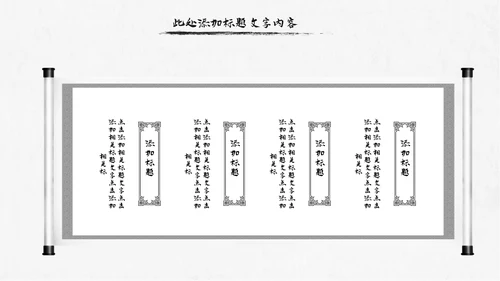 此处添加标题文字内容
添加标题
点击添加相关标题文字点击
添加相关标题文字点击添加
相关标
添加标题
点击添加相关标题文字点击
添加相关标题文字点击添加
相关标
添加标题
点击添加相关标题文字点击
添加相关标题文字点击添加
相关标
添加标题
点击添加相关标题文字点击
添加相关标题文字点击添加
相关标